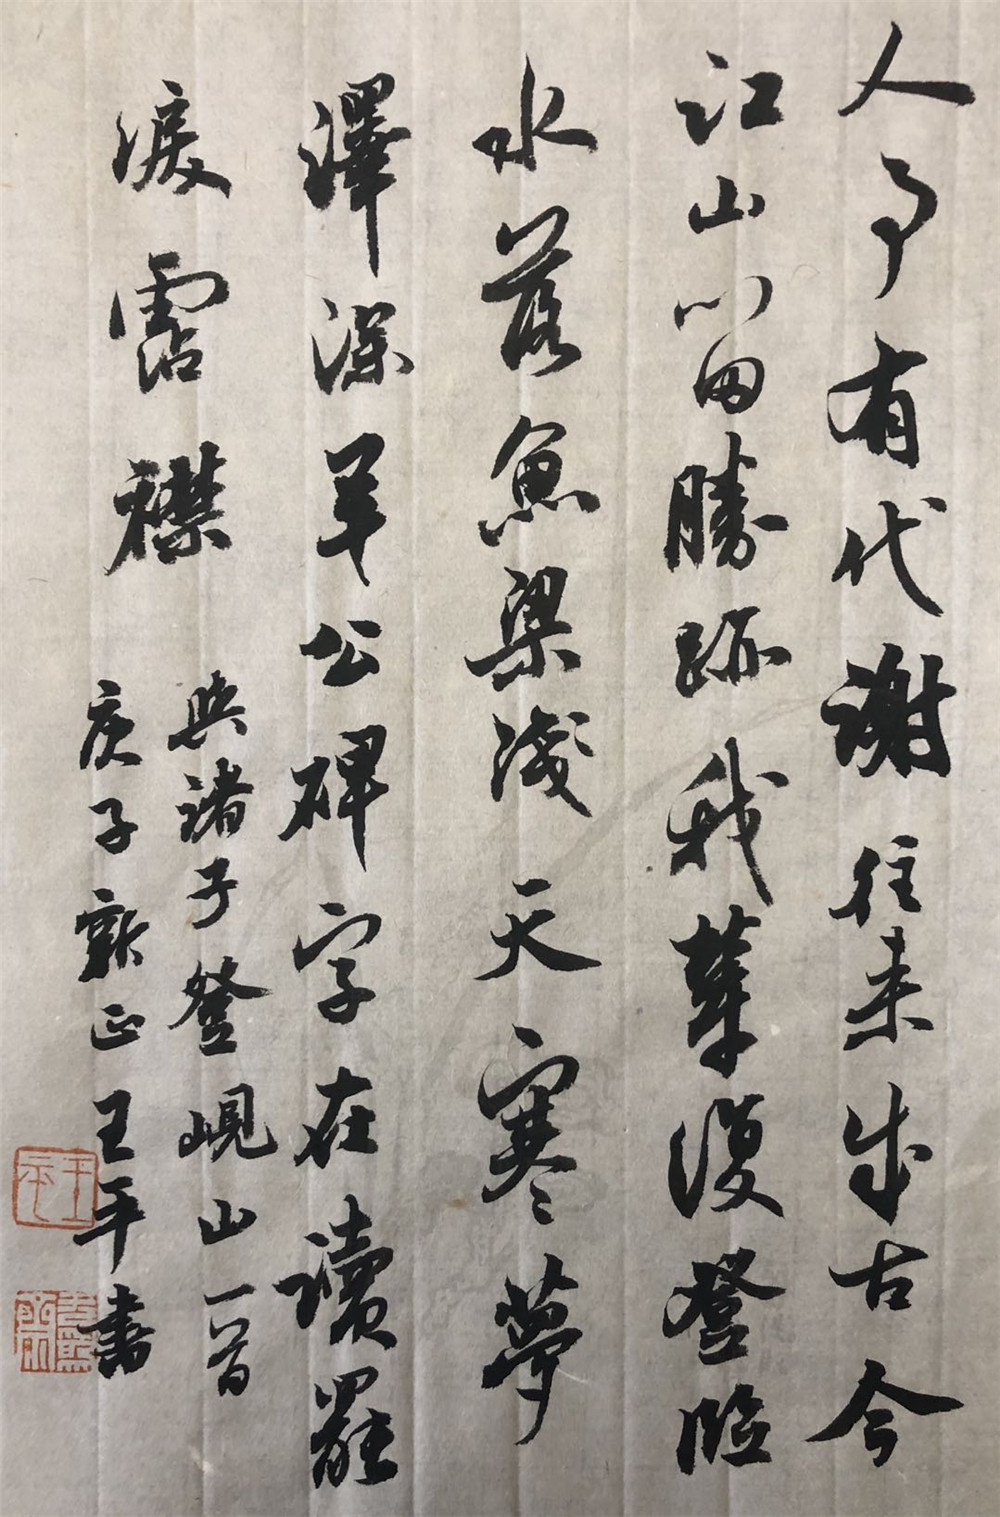 人事有代謝往来成古今
江山留勝跡我輩復登臨
水落魚梁淺天寒夢
澤深羊公碑字在讀罷
淚霑襟
與諸子登峴山一首
庚子新正王平書
王平